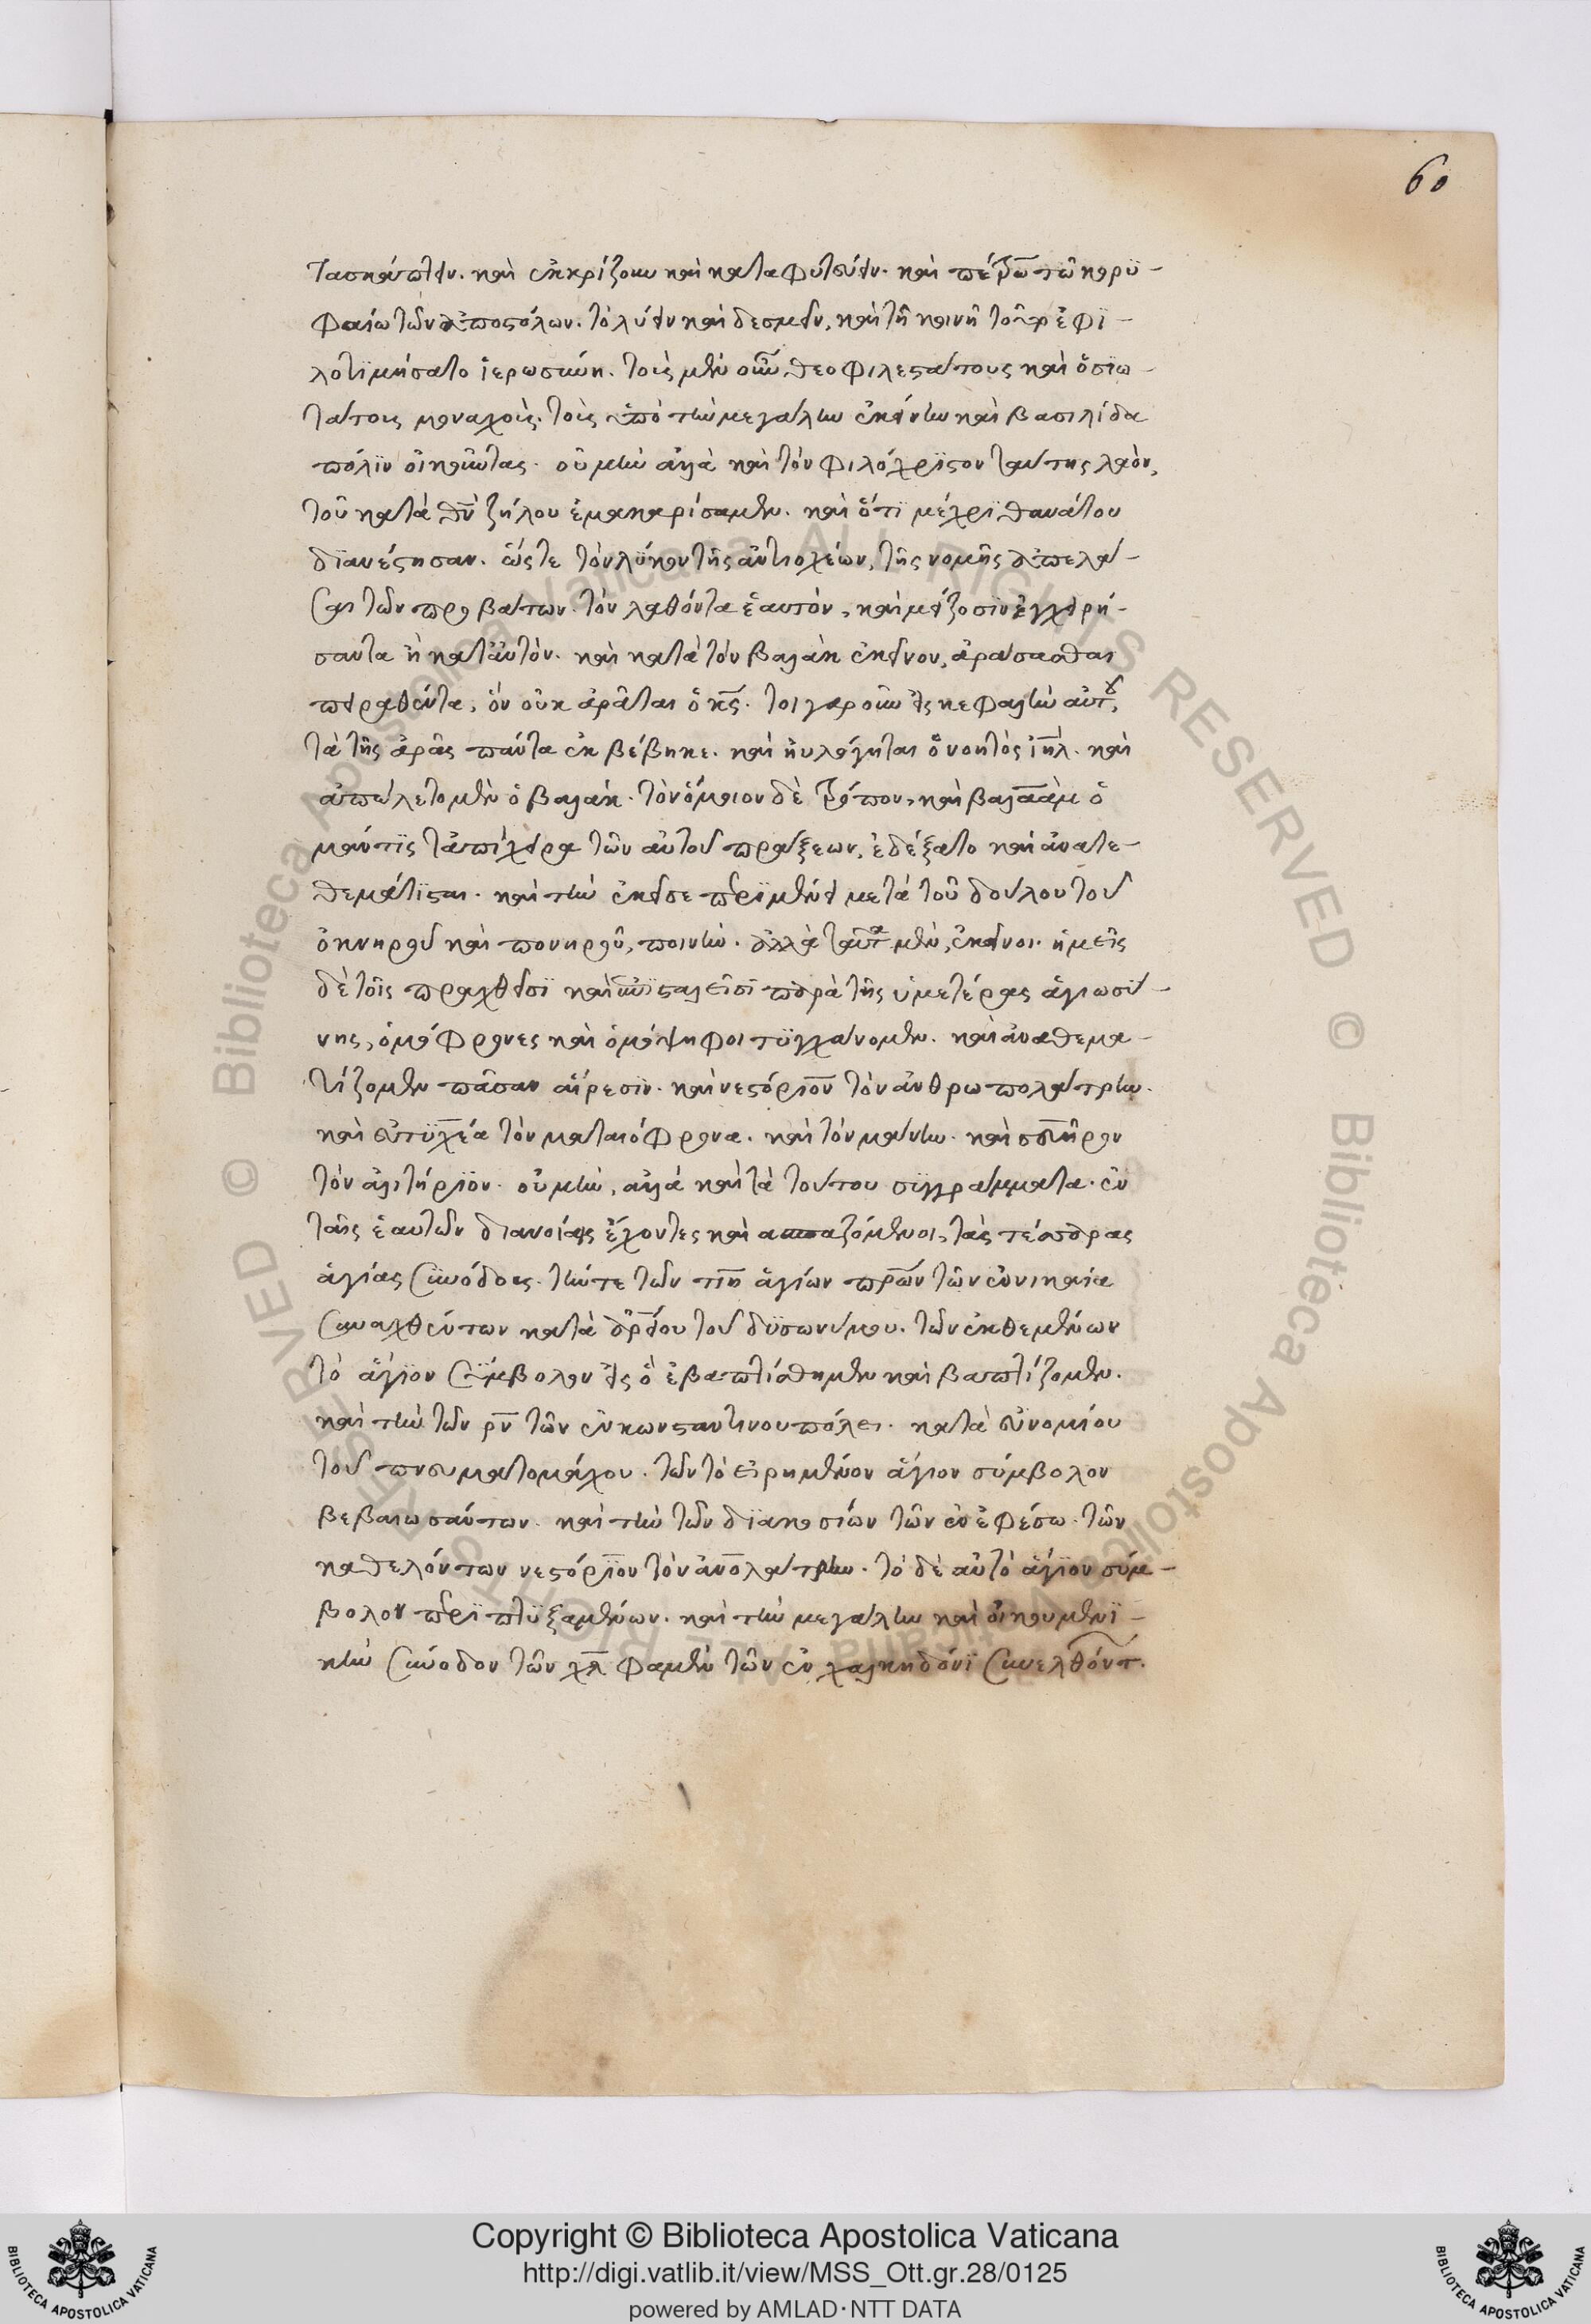 60
τασκάπτειν. καὶ ἐκκρίζουν καὶ καταφυτεύειν. καὶ πέτρω τῶ κορϋ-
φαίω τῶν ἀποστόλων. τὸ λύειν καὶ δεσμεῖν, καὶ τῆ κοινῆ τοῦτο ἐφϊ-
λοτϊμήσατο ἱερωσύνη. τοὺς μὲν οὖν θεοφιλεστάτους καὶ ὁσϊω-
τάτοις μοναχοῖς. τοῖς ὑπὸ τὴν μεγάλην ἐκείνην καὶ βασιλίδα
πόλϊν οἰκοῦντας. οὐ μὴν ἀλλὰ καὶ τὸν φιλόχρϊστον ταύτης λαὸν,
τοῦ κατὰ θν̅ ζήλου ἐμακαρίσαμεν. καὶ ὅτϊ μέχρϊ θανάτου
δϊανέστησαν. ὥστε τὸν λύκον τῆς ἀντιοχέων, τῆς νομῆς ἀπελά-
σαι τῶν προβάτων. τὸν λαθόντα ἑαυτὸν, καὶ μείζοσϊν ἐγχειρή-
σαντα ἢ κατ' αὐτὸν. καὶ κατὰ τὸν βαλὰκ ἐκεῖνον, ἀράσασθαι
πειραθέντα, ὃν οὐκ ἀρᾶται ὁ κς̅. τοιγαροῦν εἰς κεφαλὴν αὐτου,
τὰ τῆς ἀρᾶς πάντα ἐκβέβηκε. καὶ ηὐλόγηται ὁ νοητὸς ιηλ̅. καὶ
ἀπώλετο μὲν ὁ βαλάκ. τὸν ὅμοιον δὲ τρόπον, καὶ βαλαὰμ ὁ
μάντϊς τἀπίχειρα τῶν αὐτοῦ πράξεων, ἐδέξατο καὶ ἀνατε-
θεμάτϊσται. καὶ τὴν ἐκεῖσε περϊμένει μετὰ τοῦ δούλου τοῦ
ὀκνηροῦ καὶ πονηροῦ, ποινὴν. ἀλλὰ ταῦτα μὲν, ἐκεῖνοι. ἡμεῖς
δὲ τοῖς πραχθεῖσϊ καὶ συϊσταλεῖσϊ παρὰ τῆς ὑμετέρας ἁγιωσύ-
νης, ὁμόφρονες καὶ ὁμόψηφοι τϋγχάνομεν. καὶ ἀναθεμα-
τίζομεν πᾶσαν αἵρεσϊν. καὶ νεστόριον τὸν ἀνθρωπολάτρην.
καὶ εὐτϋχέα τὸν ματαιόφρονα. καὶ τὸν μάνην. καὶ σευῆρον
τὸν ἀλιτήρϊον. οὐ μὴν, ἀλλὰ καὶ τὰ τούτου σϋγγράμματα. ἐν
ταῖς ἑαυτῶν διανοίαις ἔχοντες καὶ ἀσπαζόμενοι, τὰς τέσσαρας
ἁγίας συνόδους. τήν τε τῶν τιη̅ ἁγίων πρω̅ν τῶν ἐν νικαία
συναχθέντων κατὰ ἀρείου τοῦ δϋσωνύμου. τῶν ἐκθεμένων
τὸ ἅγϊον σύμβολον εἰς ὃ ἐβαπτίσθημεν καὶ βαπτίζομεν.
καὶ τὴν τῶν ρν̅ τῶν ἐν κωνσταντινουπόλει. κατὰ εὐνομίου
τοῦ πνευματομάχου. τῶν τὸ εἰρημένον ἅγιον σύμβολον
βεβαιωσάντων. καὶ τὴν τῶν δϊακοσίων τῶν ἐν ἐφέσω. τῶν
καθελόντων νεστόρϊον τὸν ἀνο̅λάτρην. τὸ δὲ αὐτὸ ἅγϊον σύμ-
βολον περϊπτϋξαμένων. καὶ τὴν μεγάλην καὶ οἰκουμενϊ-
κὴν σύνοδον τῶν χλ̅ φαμὲν τῶν ἐν χαλκηδόνϊ συνελθόντ.
Copyright © Biblioteca Apostolica Vaticana
http://digi.vatlib.it/view/MSS_Ott.gr.28/0125
powered by AMLAD·NTT DATA